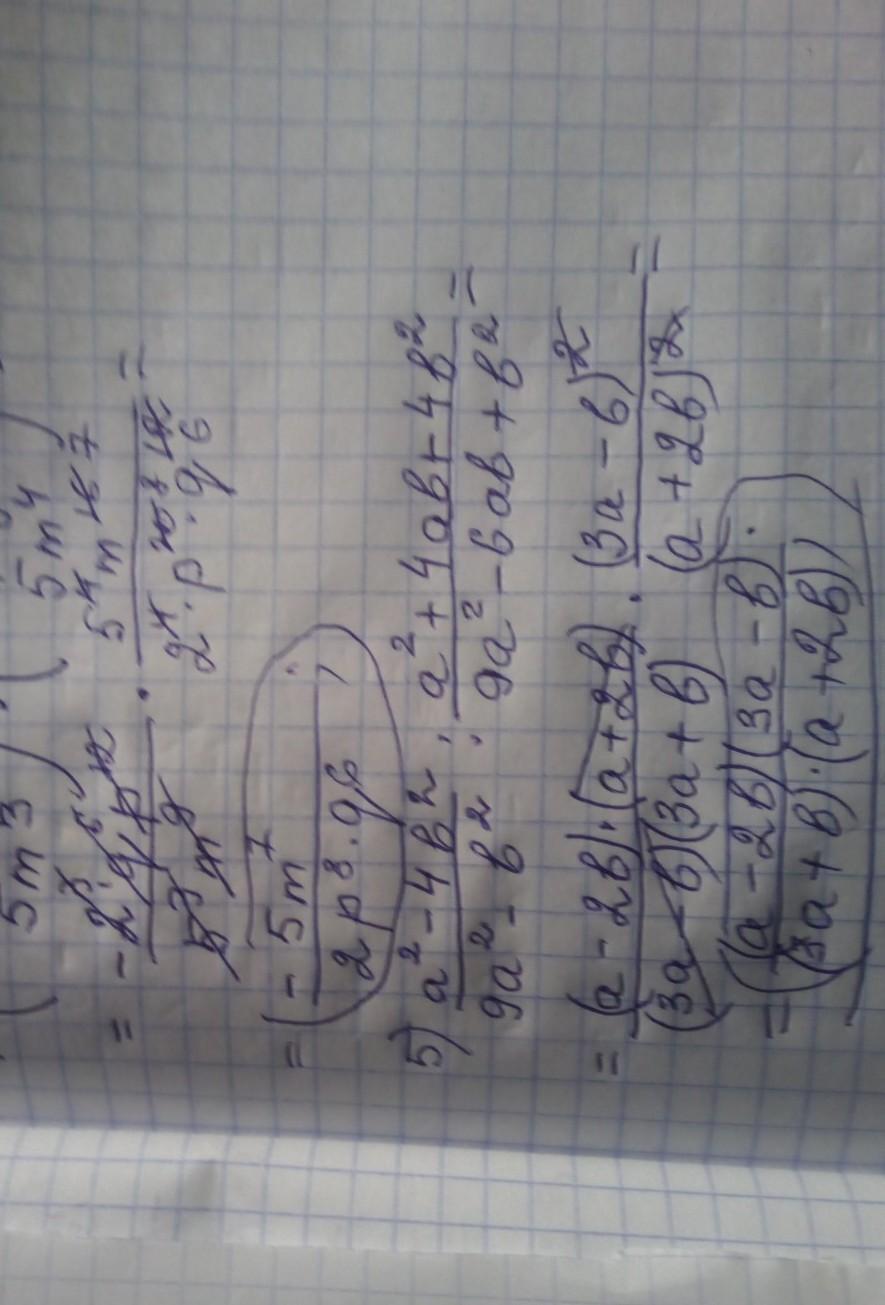 5m³ 5m⁴
= -2³ q⁵ p¹² / 5³ m⁹ · 5⁴ m¹⁶ ⁷ / 2⁴ · p²⁰ ⁸ · q⁶ =
= (-5m⁷ / 2p⁸ · q⁶ ;
5) a² - 4b² / 9a² - b² : a² + 4ab + 4b² / 9a² - 6ab + b² =
= (a - 2b) · (a + 2b) / (3a - b)(3a + b) · (3a - b)² / (a + 2b)² =
= (a - 2b)(3a - b) / (3a + b) · (a + 2b) .